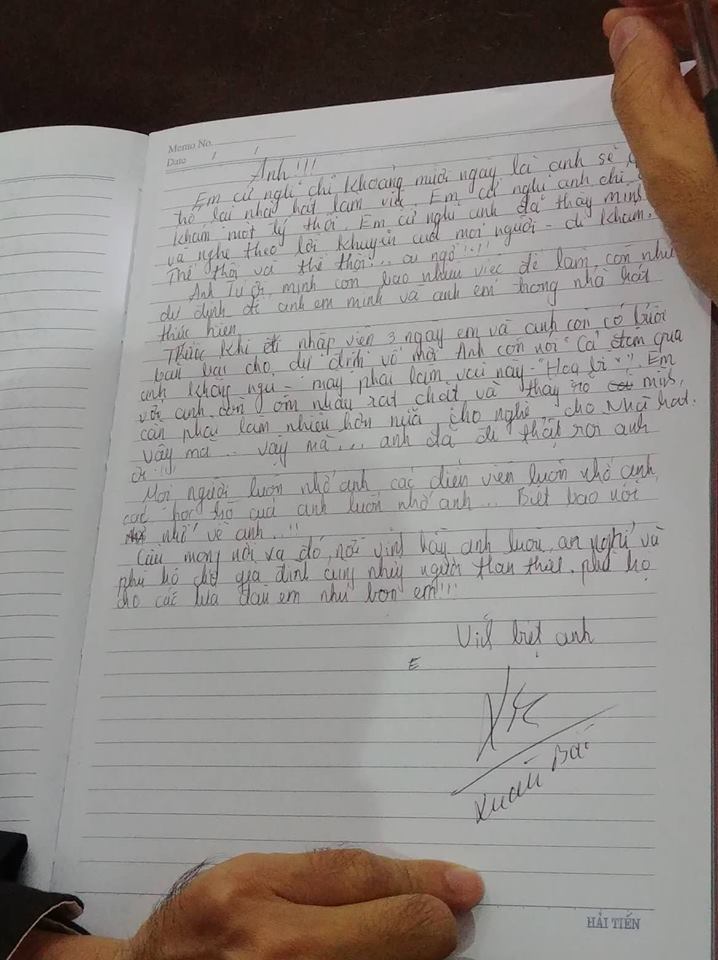 Memo No.
Date / /
Anh!!!
Em cứ nghĩ chỉ khoảng mười ngày là anh sẽ
trở lại nhà hát làm việc. Em cứ nghĩ anh chỉ
khám một tý thôi. Em cứ nghĩ anh đã thấy mình
và nghe theo lời khuyên của mọi người - đi khám.
Thế thôi và thế thôi... ai ngờ!!!!
Anh Tư ơi, mình còn bao nhiêu việc để làm, còn
dự định để anh em mình và anh em trong nhà hát
thực hiện.
Trước khi đi nhập viện 3 ngày em và anh còn có buổi
bàn bạc cho, dự định vở mới Anh còn nói "Cả đêm qua
anh không ngủ - mày phải làm vai này - "Hoa
với anh còn ôm nhau rất chặt và thấy mình,
cần phải làm nhiều hơn nữa, cho nghề, cho Nhà hát.
Vậy mà.. vậy mà... anh đã đi thật rồi anh
ơi!!!
Mọi người luôn nhớ anh, các diễn viên luôn nhớ anh
các học trò của anh luôn nhớ anh... Biết bao nỗi
nhớ về anh...!!
Cầu mong nơi xa đó, nơi vĩnh hằng anh luôn an nghỉ và
phù hộ cho gia đình cùng những người thân thiết. phù hộ
cho các lứa đàn em như bọn em!!!
Vĩnh biệt anh
E
Xuân Bắc
HẢI TIẾN